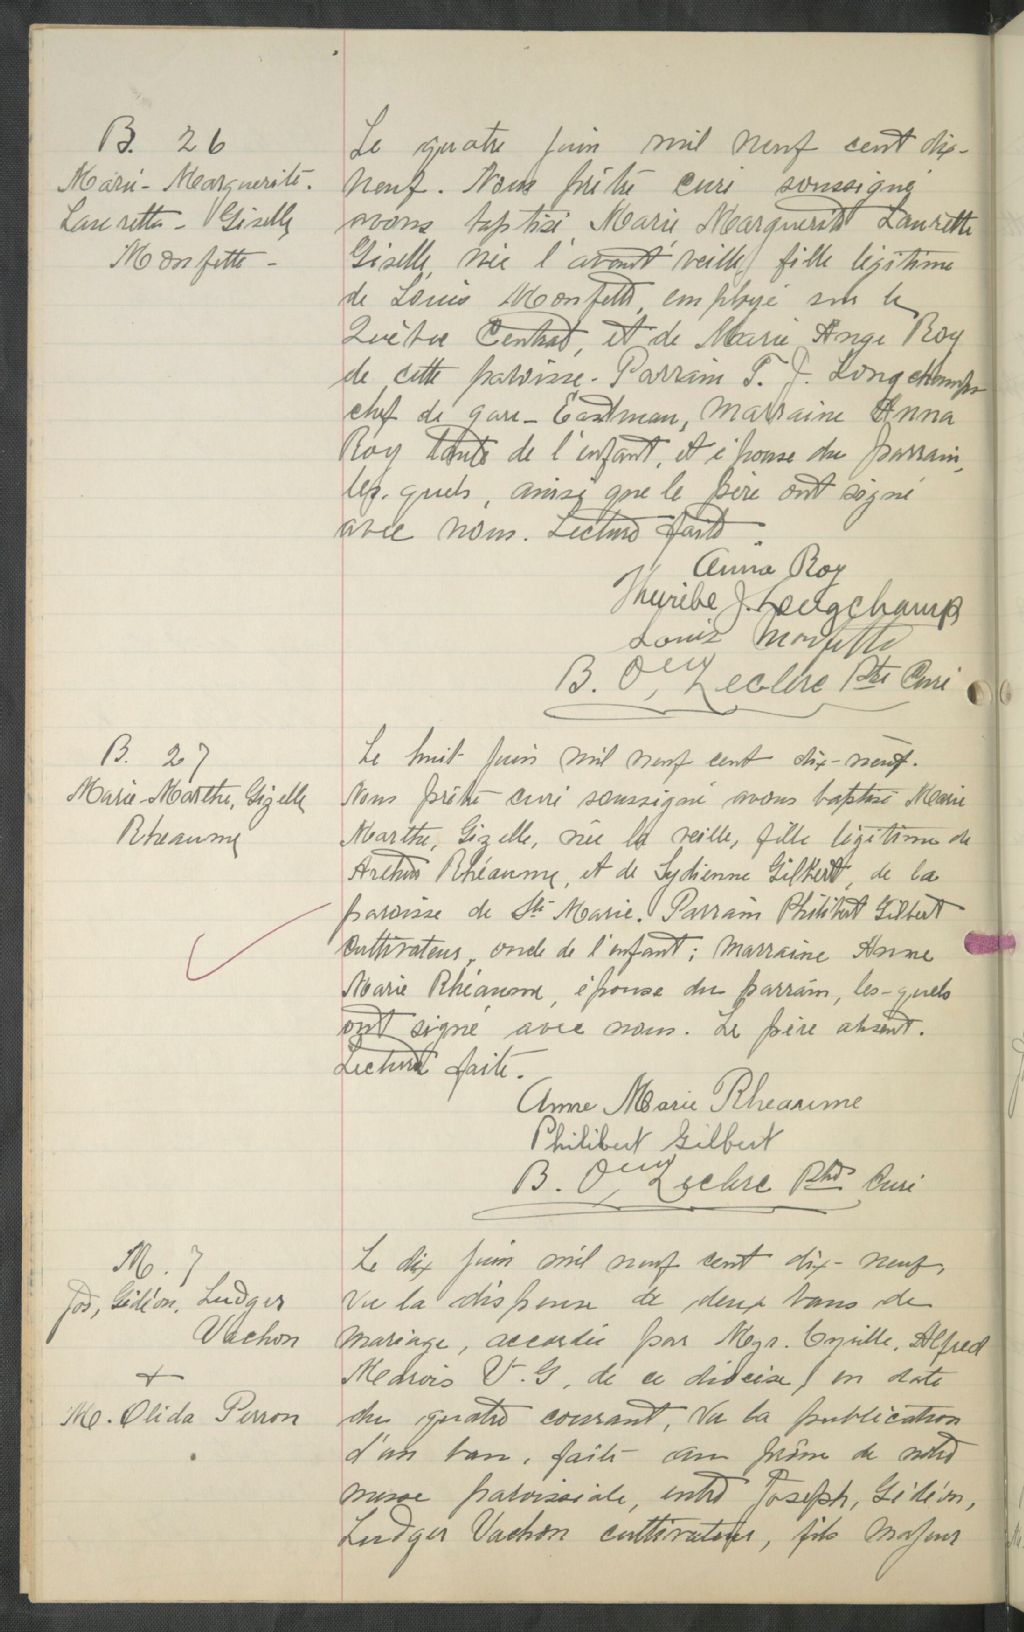 B. 26
Marie-Marguerite.
Lauretta-Giselle
Monfette-
Le quatre juin mil neuf cent dix-
neuf. Nous prêtre curé soussigné
avons baptisé Marie Marguerite Laurette
Giselle, née l'avant veille, fille légitime
de Louis Monfette, employé sur le
Québec Central, et de Marie Ange Roy
de cette paroisse. Parrain T. J. Longchamps
chef de gare - Eastman, Marraine Anna
Roy tante de l'enfant, et épouse du parrain,
les-quels, ainsi que le père ont signé
avec nous. Lecture faite.
Anna Roy
Thuribe J. Longchamps
Louis Monfette
B. Leclerc Ptre Curé
B. 27
Marie-Marthe, Gizelle
Rheaume
Le huit juin mil neuf cent dix-neuf.
Nous prêtre curé soussigné avons baptisé Marie
Marthe, Gizelle, née la veille, fille légitime de
Arthur Rhéaume, et de Lydienne Gilbert, de la
paroisse de Ste Marie. Parrain Philibert Gilbert
cultivateur, oncle de l'enfant; Marraine Anne
Marie Rhéaume, épouse du parrain, les-quels
ont signé avec nous. Le père absent.
Lecture faite.
Anne Marie Rheaume
Philibert Gilbert
B. Leclerc Ptre Curé
M. 7
Jos, Gédéon, Ludger
Vachon
+
M. Olida Perron
Le dix juin mil neuf cent dix-neuf,
Vu la dispense de deux bans de
mariage, accordée par Mgr. Cyrille, Alfred
Marois V.G, de ce diocèse, en date
du quatre courant, Vu la publication
d'un ban, faite au prône de notre
messe paroissiale, entre Joseph, Gédéon,
Ludger Vachon cultivateur, fils majeur